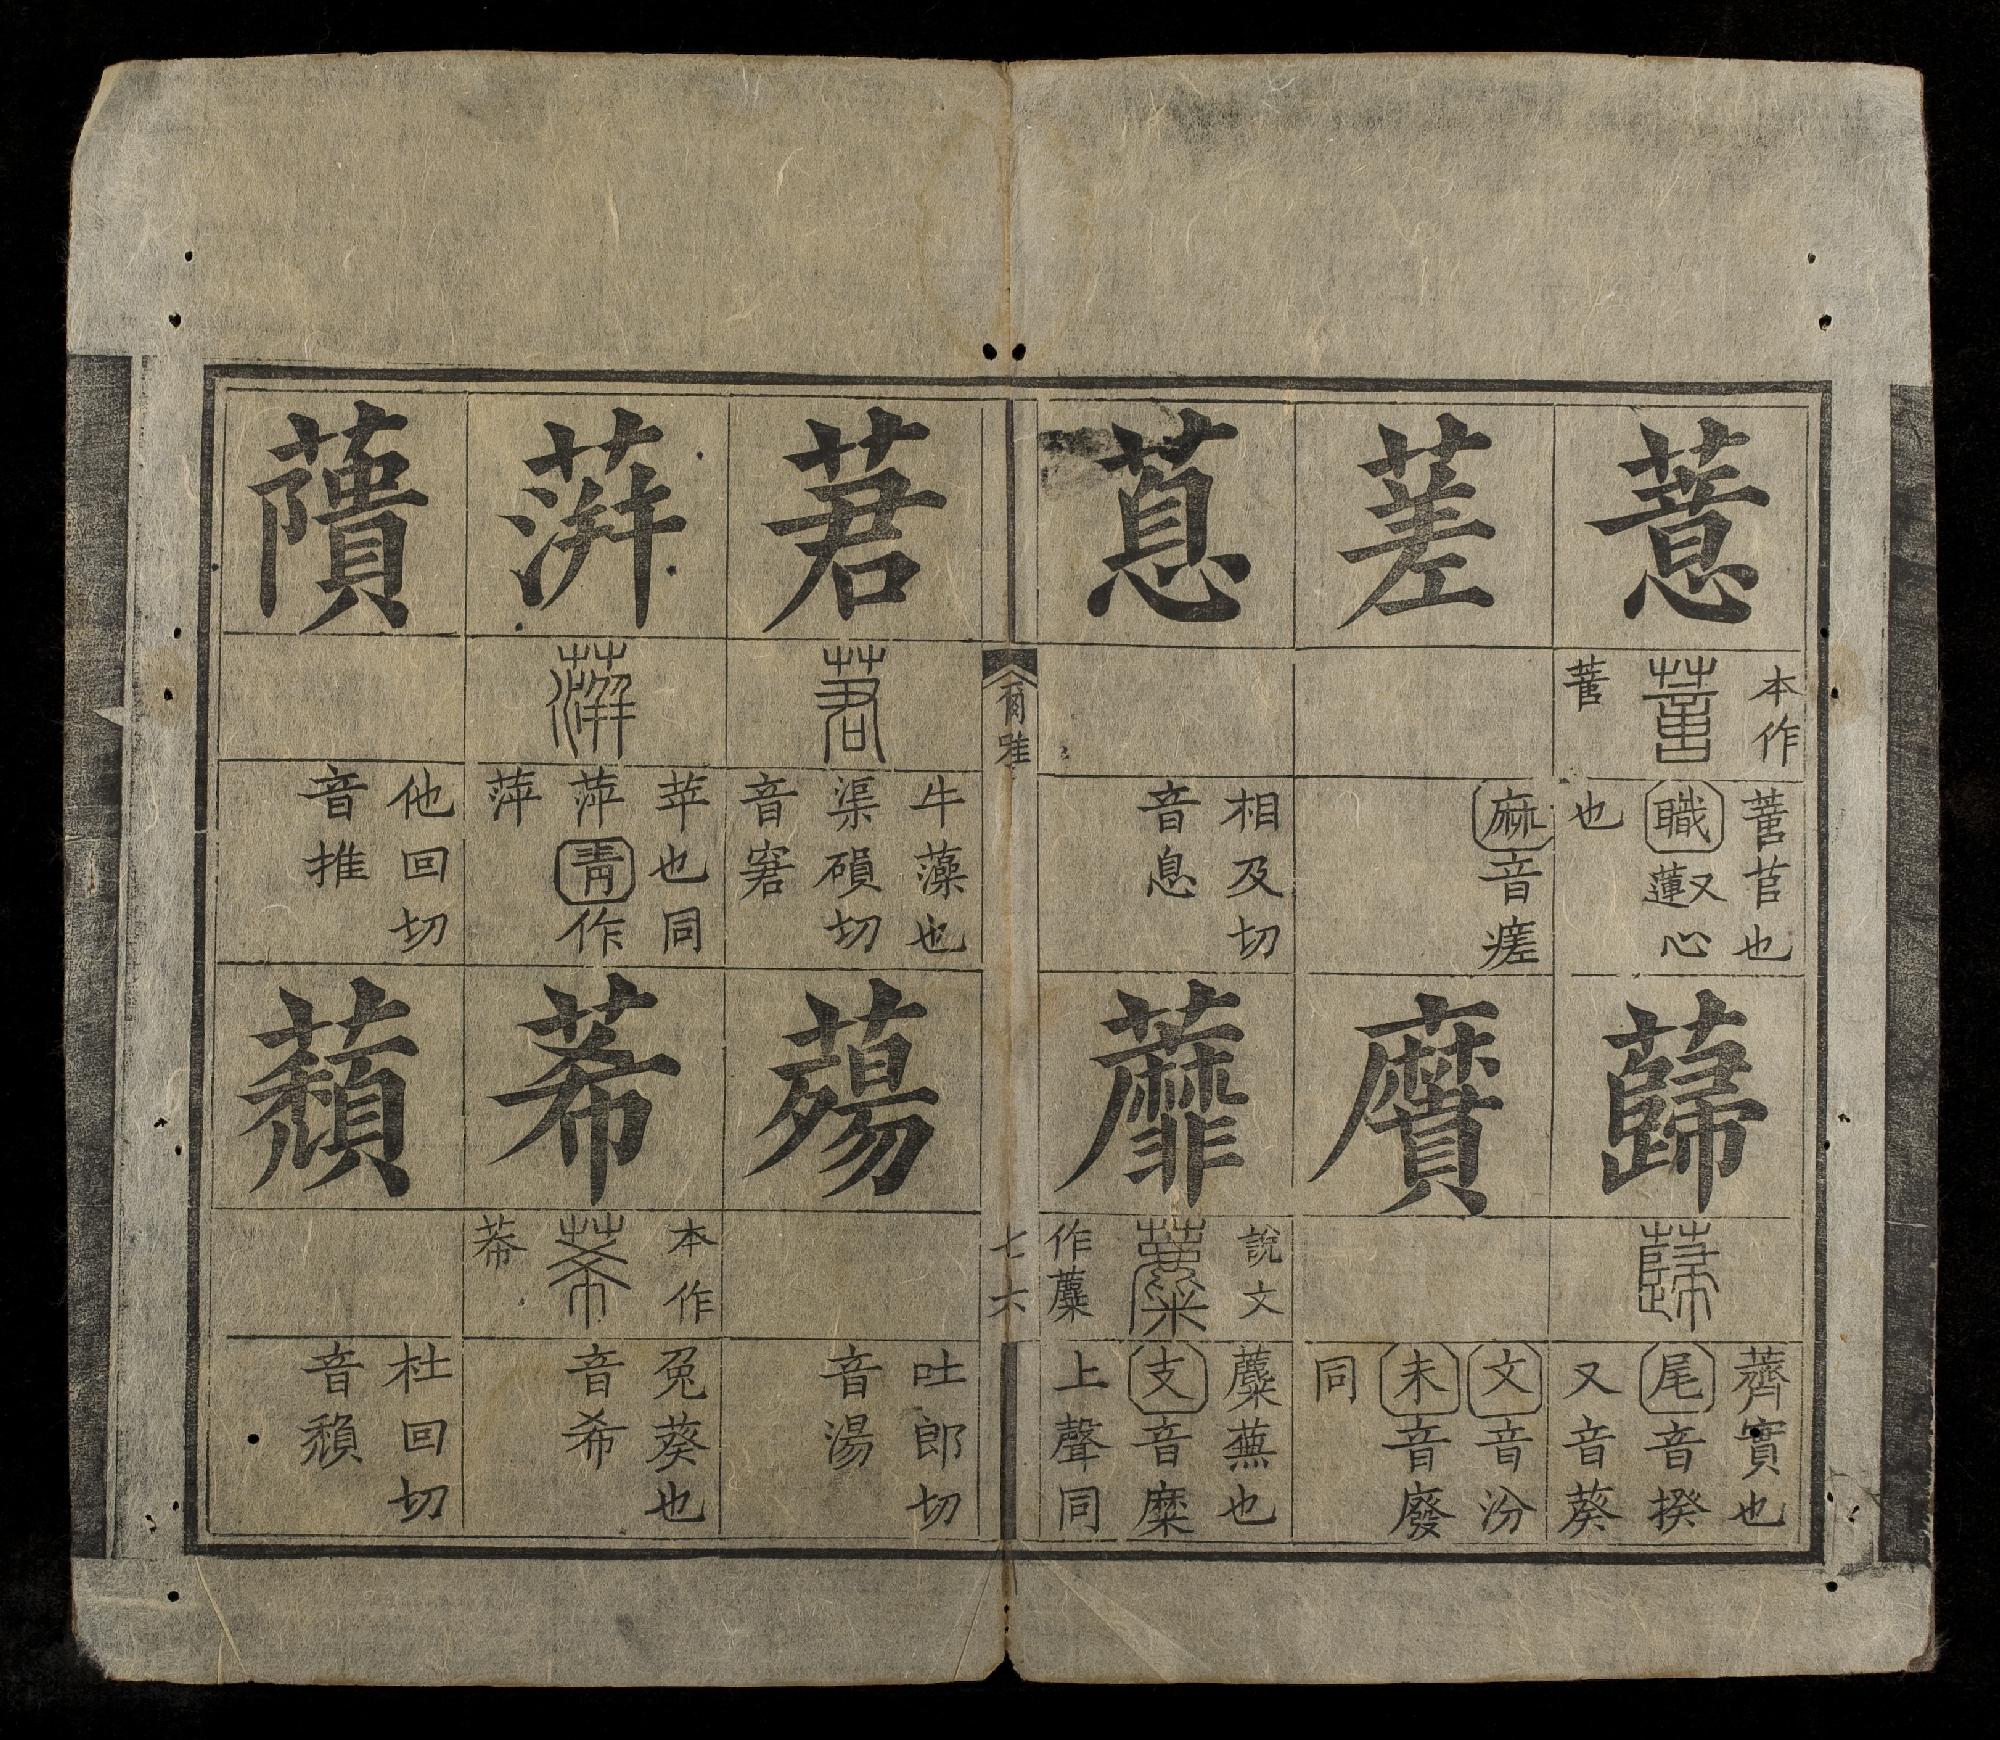 薏
本作
薏
䔰
䔰苢也
職又蓮心
也
蒫
麻音瘥
蒠
相及切
音息
蘬
蘬
薺實也
尾音揆
又音葵
黂
文音汾
未音廢
同
蘼
說文
蘪
作蘪
蘪蕪也
支音糜
上聲同
爾雅
七六
莙
莙
牛藻也
渠磒切
音窘
蓱
蓱
苹也同
萍青作
萍
蓷
他回切
音推
蕩
吐郎切
音湯
莃
本作
莃
莃
兔葵也
音希
蘈
杜回切
音穨